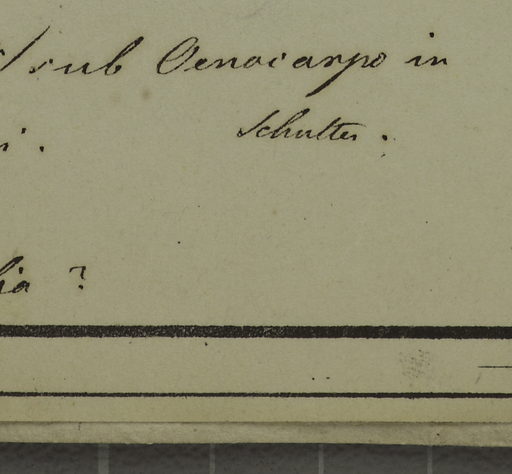 sub Oenocarpo in
Schultes.
?